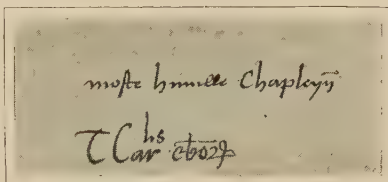 moste humble Chapleyn
T Car^lis ebor^